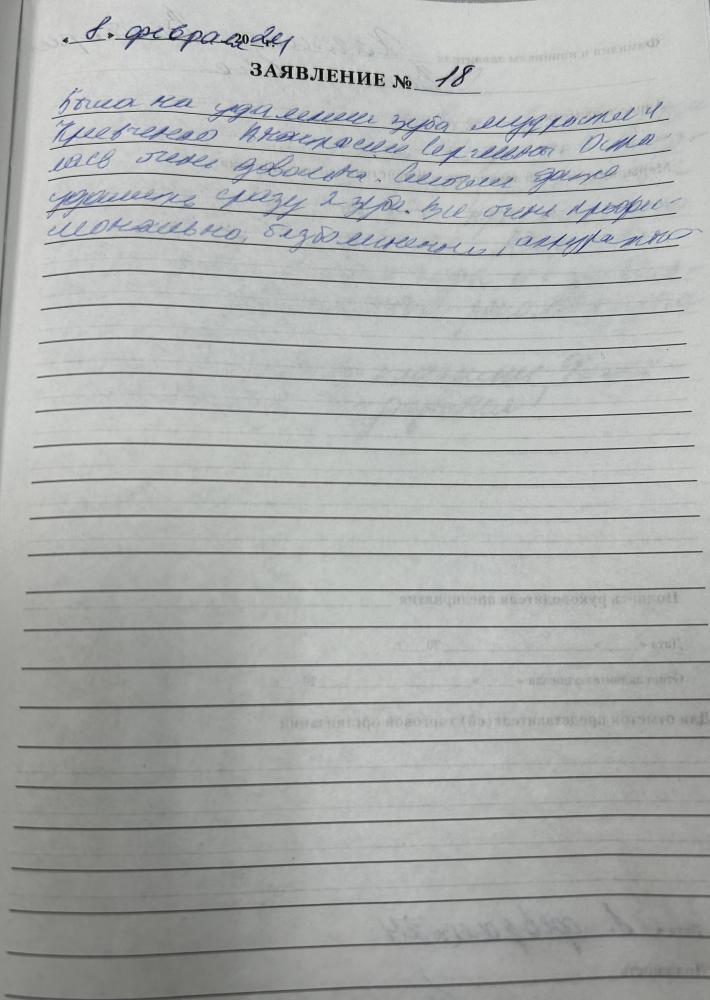 « 8 » февраля 2024
ЗАЯВЛЕНИЕ № 18
Была на удалении зуба мудрости у
Кравченко Сергеевны Оста-
лась очень довольна. даже
удалить сразу 2 зуба. Все очень профес-
сионально, безболезненно, аккуратно